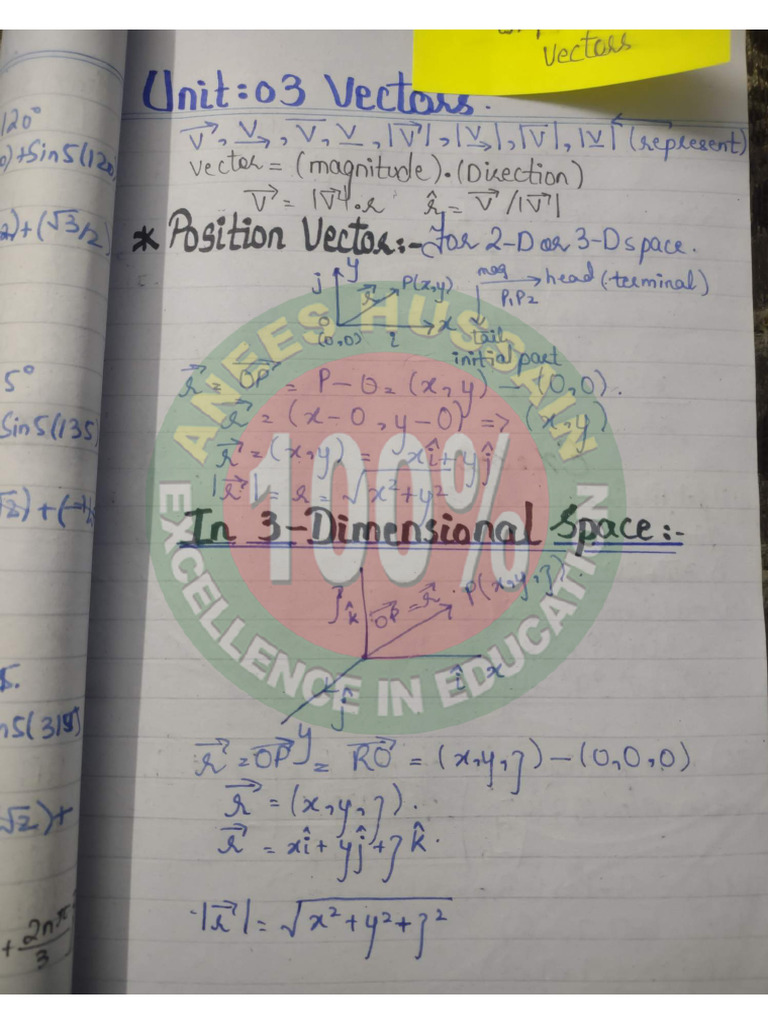 Vectors
Unit:03 Vectors.
V⃗, V→, V̅, V̲, |V⃗|, |V→|, |V̅|, |V̲| ← (represent)
Vector = (magnitude)·(Direction)
V⃗ = |V⃗|·r̂   r̂ = V⃗/|V⃗|
* Position Vector:- For 2-D or 3-D space.
y
j r⃗ P(x,y) mag → head (terminal)
P₁P₂
o x
(0,0) i tail
initial part
r⃗ = OP⃗ = P-O = (x,y) - (0,0).
r⃗ = (x-0, y-0) => (x,y)
r⃗ = (x,y) = xî+yĵ
|r⃗| = r = √x²+y²
In 3-Dimensional Space:-
z k̂ OP⃗ = r⃗ P(x,y,z).
î x
ĵ
y
r⃗ = OP⃗ = RO⃗ = (x,y,z) - (0,0,0)
r⃗ = (x,y,z).
r⃗ = xî + yĵ + zk̂.
|r⃗| = √x²+y²+z²
120°
)+Sin5(120
2)+(√3/2
5°
Sin5(135
√2)+(-1/
s.
n5(315°
√2)+
+2nπ/3
ANEES HUSSAIN
100%
EXCELLENCE IN EDUCATION